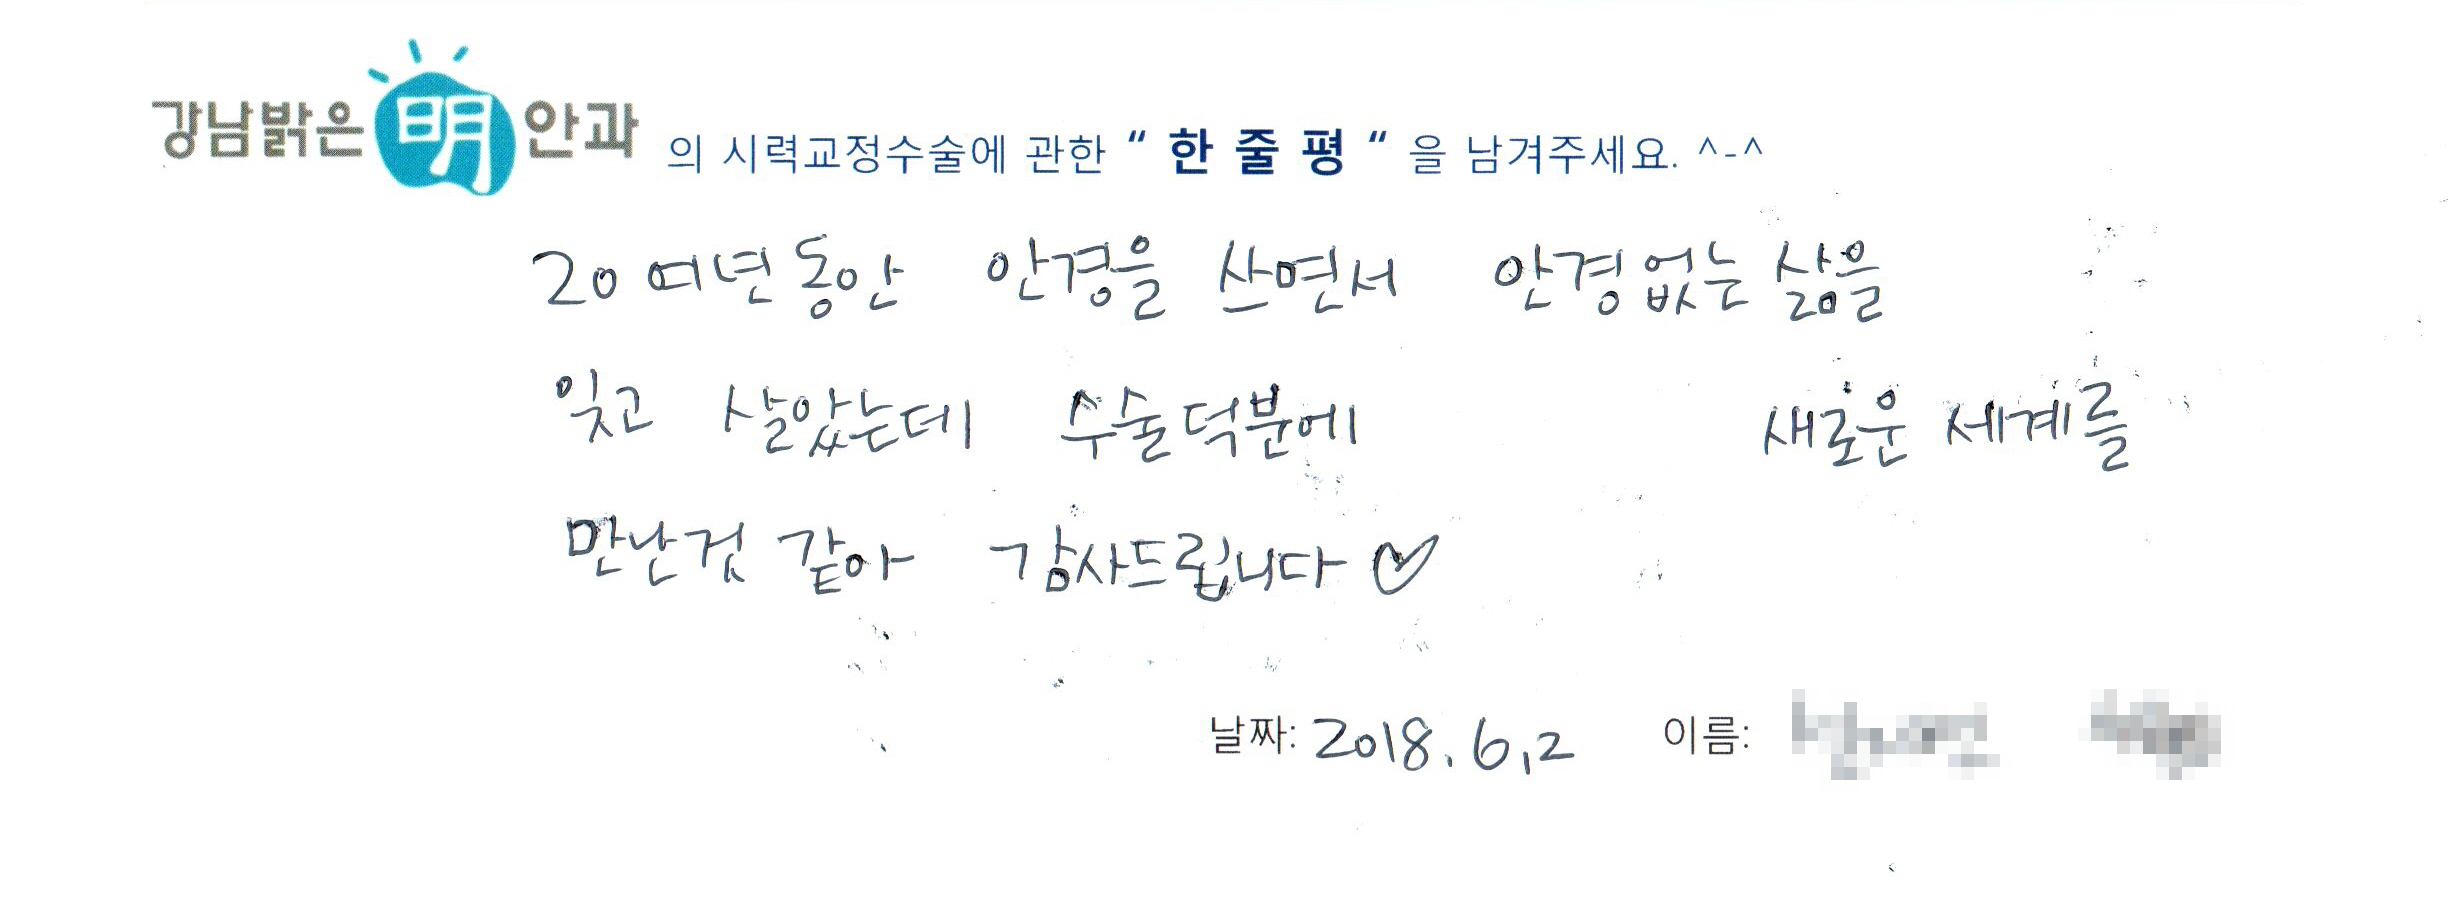 강남밝은明안과 의 시력교정수술에 관한 “ 한 줄 평 “ 을 남겨주세요. ^-^
20여년동안 안경을 산면서 안경없는 삶을
잊고 살았는데 수술덕분에 새로운 세계를
만난것 같아 감사드립니다♡
날짜: 2018. 6.2 이름: